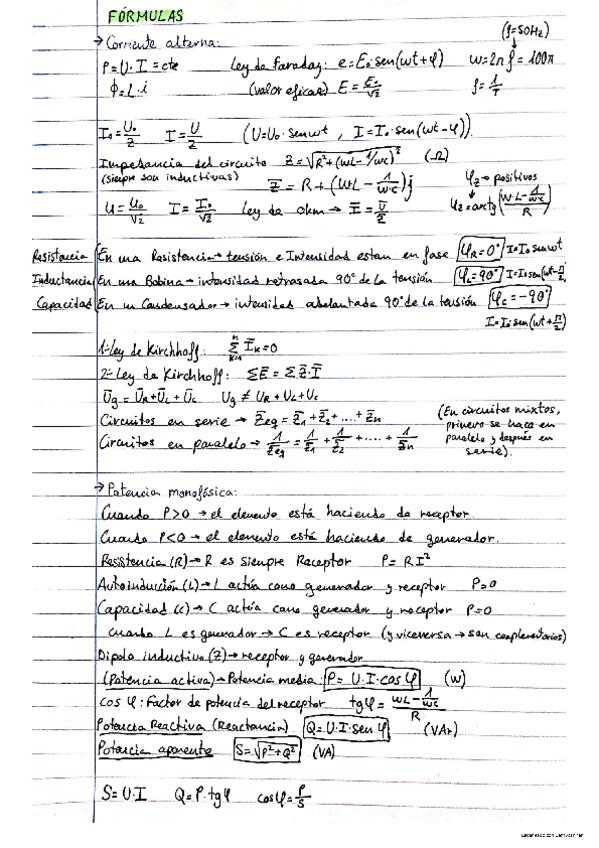 FÓRMULAS
→ Corriente alterna: (f=50Hz)
P=U·I=cte   Ley de Faraday: e=E₀·sen(wt+φ)   w=2πf=100π
ϕ=L·i   (valor eficaz) E=E₀/√2   f=1/T
I₀=U₀/Z   I=U/Z   (U=U₀·senwt, I=I₀·sen(wt-φ))
Impedancia del circuito Z=√(R²+(wL-1/wc)²) (Ω)
(siempre son inductivas)   Z̅=R+(wL-1/w·c)j   φz→positivos
U=U₀/√2   I=I₀/√2   Ley de ohm→ I̅=U̅/Z̅   φz=arctg((w·L-1/w·c)/R)
Resistencia (En una Resistencia→tensión e Intensidad estan en fase φR=0° I=I₀senwt
Inductancia En una Bobina→intensidad retrasada 90° de la tensión φL=90° I=I₀sen(wt-π/2)
Capacidad En un Condensador→intensidad adelantada 90° de la tensión φC=-90°
I=I₀·sen(wt+π/2)
1ª Ley de Kirchhoff: Σ I̅ₖ=0
2ª Ley de Kirchhoff: ΣE̅=ΣZ̅·I̅
U̅g=U̅R+U̅L+U̅c   Ug≠UR+UL+Uc
Circuitos en serie→Z̅eq=Z̅1+Z̅2+...+Z̅n
Circuitos en paralelo→1/Z̅eq=1/Z̅1+1/Z̅2+....+1/Z̅n
(En circuitos mixtos,
primero se hace en
paralelo y después en
serie).
→ Potencia monofásica:
Cuando P>0→el elemento está haciendo de receptor.
Cuando P<0→el elemento está haciendo de generador.
Resistencia (R)→R es siempre Receptor   P=RI²
Autoinducción (L)→L actúa como generador y receptor   P=0
Capacidad (c)→C actúa como generador y receptor   P=0
Cuando L es generador→C es receptor (y viceversa→son complementarios)
Dipolo inductivo (Z)→receptor y generador
(Potencia activa)→Potencia media: P=U·I·cosφ   (W)
cosφ: Factor de potencia del receptor   tgφ=(wL-1/wc)/R
Potencia Reactiva (Reactancia)   Q=U·I·senφ   (VAr)
Potencia aparente   S=√(P²+Q²)   (VA)
S=U·I   Q=P·tgφ   cosφ=P/S